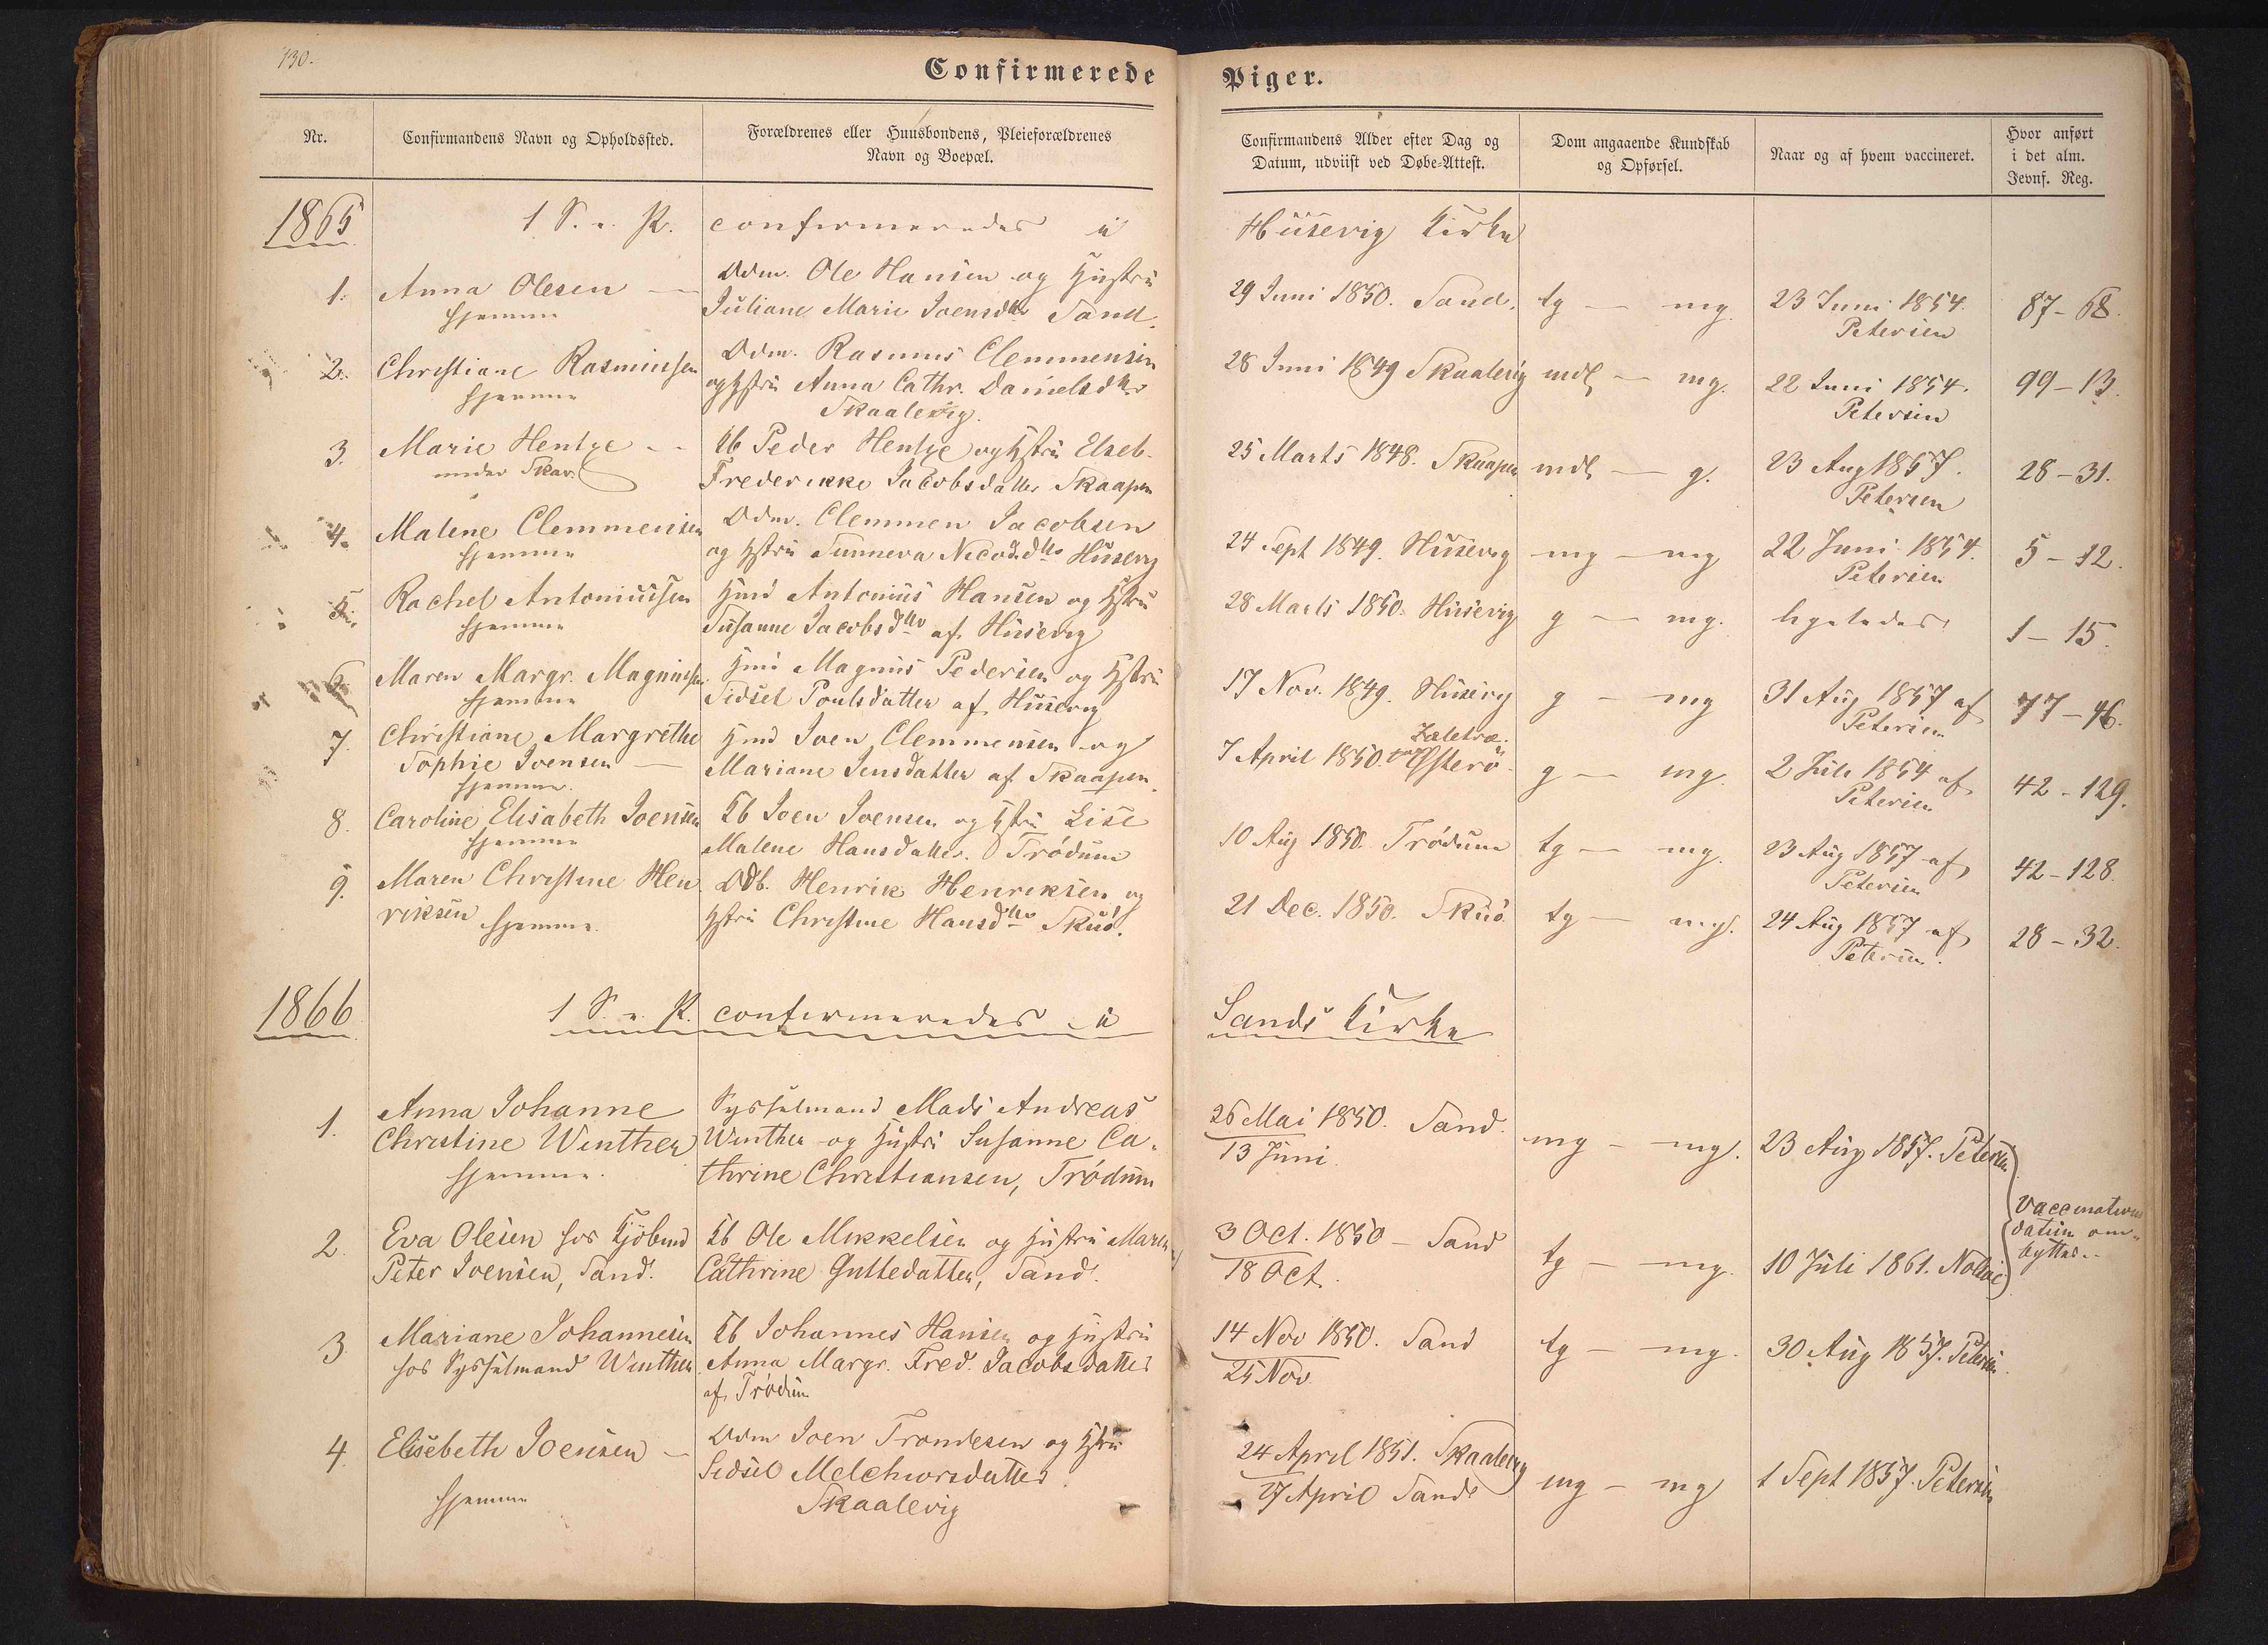 130.
Confirmerede Piger.
Nr.
Confirmandens Navn og Opholdssted.
Forældrenes eller Huusbondens, Pleieforældrenes
Navn og Boepæl.
Confirmandens Alder efter Dag og
Datum, udviist ved Døbe-Attest.
Dom angaaende Kundskab
og Opførsel.
Naar og af hvem vaccineret.
Hvor anført
i det alm.
Jevnf. Reg.
1865 1 S. e. P. confirmeredes i Husevig Kirke
1. Anna Olesen —
hjemme
Odm. Ole Hansen og Hustru
Juliane Marie Joensdtr Sand.
29 Juni 1850. Sand. tg — mg.
23 Juni 1854.
Petersen
87-68.
2. Christiane Rasmussen
hjemme
Odm. Rasmus Clemmensen
og Hstru Anna Cathr. Danielsdtr
Skaalevig.
28 Juni 1849 Skaalevig mdl — mg.
22 Juni 1854.
Petersen
99-13.
3. Marie Hentze - -
under Skar.
Kb Peder Hentze og Hstru Elseb.
Frederikke Jacobsdatter Skaapen
25 Marts 1848. Skaapen mdl — g.
23 Aug 1857.
Petersen
28-31.
4. Malene Clemmensen
hjemme
Odm. Clemmen Jacobsen
og Hstru Sunneva Nicod.dtr Husevig
24 Sept 1849. Husevig mg — mg
22 Juni 1854.
Petersen
5-12.
5. Rachel Antoniussen
hjemme
Hmd Antonius Hansen og Hstru
Susanne Jacobsdtr af Husevig
28 Marts 1850. Husevig g — mg.
ligeledes
1-15.
6. Maren Margr. Magnussen
hjemme
Hmd Magnus Pedersen og Hstru
Sidsel Poulsdatter af Husevig
17 Nov. 1849. Husevig g — mg
31 Aug 1857 af
Petersen
77-46.
7. Christiane Margrethe
Sophie Joensen —
hjemme.
Hmd Joen Clemmensen og
Mariane Jensdatter af Skaapen.
7 April 1850. Østerö g — mg.
2 Juli 1854 af
Petersen
42-129.
8. Caroline Elisabeth Joensen
hjemme
Kb Joen Joensen og Hstru Lise
Malene Hansdatter. Trödum
10 Aug 1850. Trödum tg — mg.
23 Aug 1857 af
Petersen
42-128.
9. Maren Christine Hen
riksen hjemme.
Odb. Henrik Henriksen og
Hstru Christine Hansdtr Skuö.
21 Dec. 1850. Skuö tg — mg.
24 Aug 1857 af
Petersen.
28-32.
1866 1 S. e. P. confirmeredes i Sands Kirke
1. Anna Johanne
Christine Winther
hjemme.
Sysselmand Mads Andreas
Winther og Hustru Susanne Ca-
thrine Christiansen, Trödum
26 Mai 1850. Sand.
13 Juni.
mg — mg.
23 Aug 1857. Petersen
Vaccinations
datum om-
byttes..
2. Eva Olesen hos Kjöbmd
Peter Joensen, Sand.
Kb Ole Mikkelsen og Hustru Maren
Cathrine Guttedatter, Sand.
3 Oct. 1850 — Sand
18 Oct.
tg — mg.
10 Juli 1861. Nolsøe
3. Mariane Johannesen
hos Sysselmand Winther
Kb Johannes Hansen og Hustru
Anna Margr. Fred. Jacobsdatter
af Trödum
14 Nov 1850. Sand
25 Nov
tg — mg.
30 Aug 1857. Petersen.
4. Elisebeth Joensen —
hjemme
Odm Joen Trondesen og Hstru
Sidsel Melchiorsdatter.
Skaalevig
24 April 1851. Skaalevig
27 April Sand
mg — mg
1 Sept 1857. Petersen